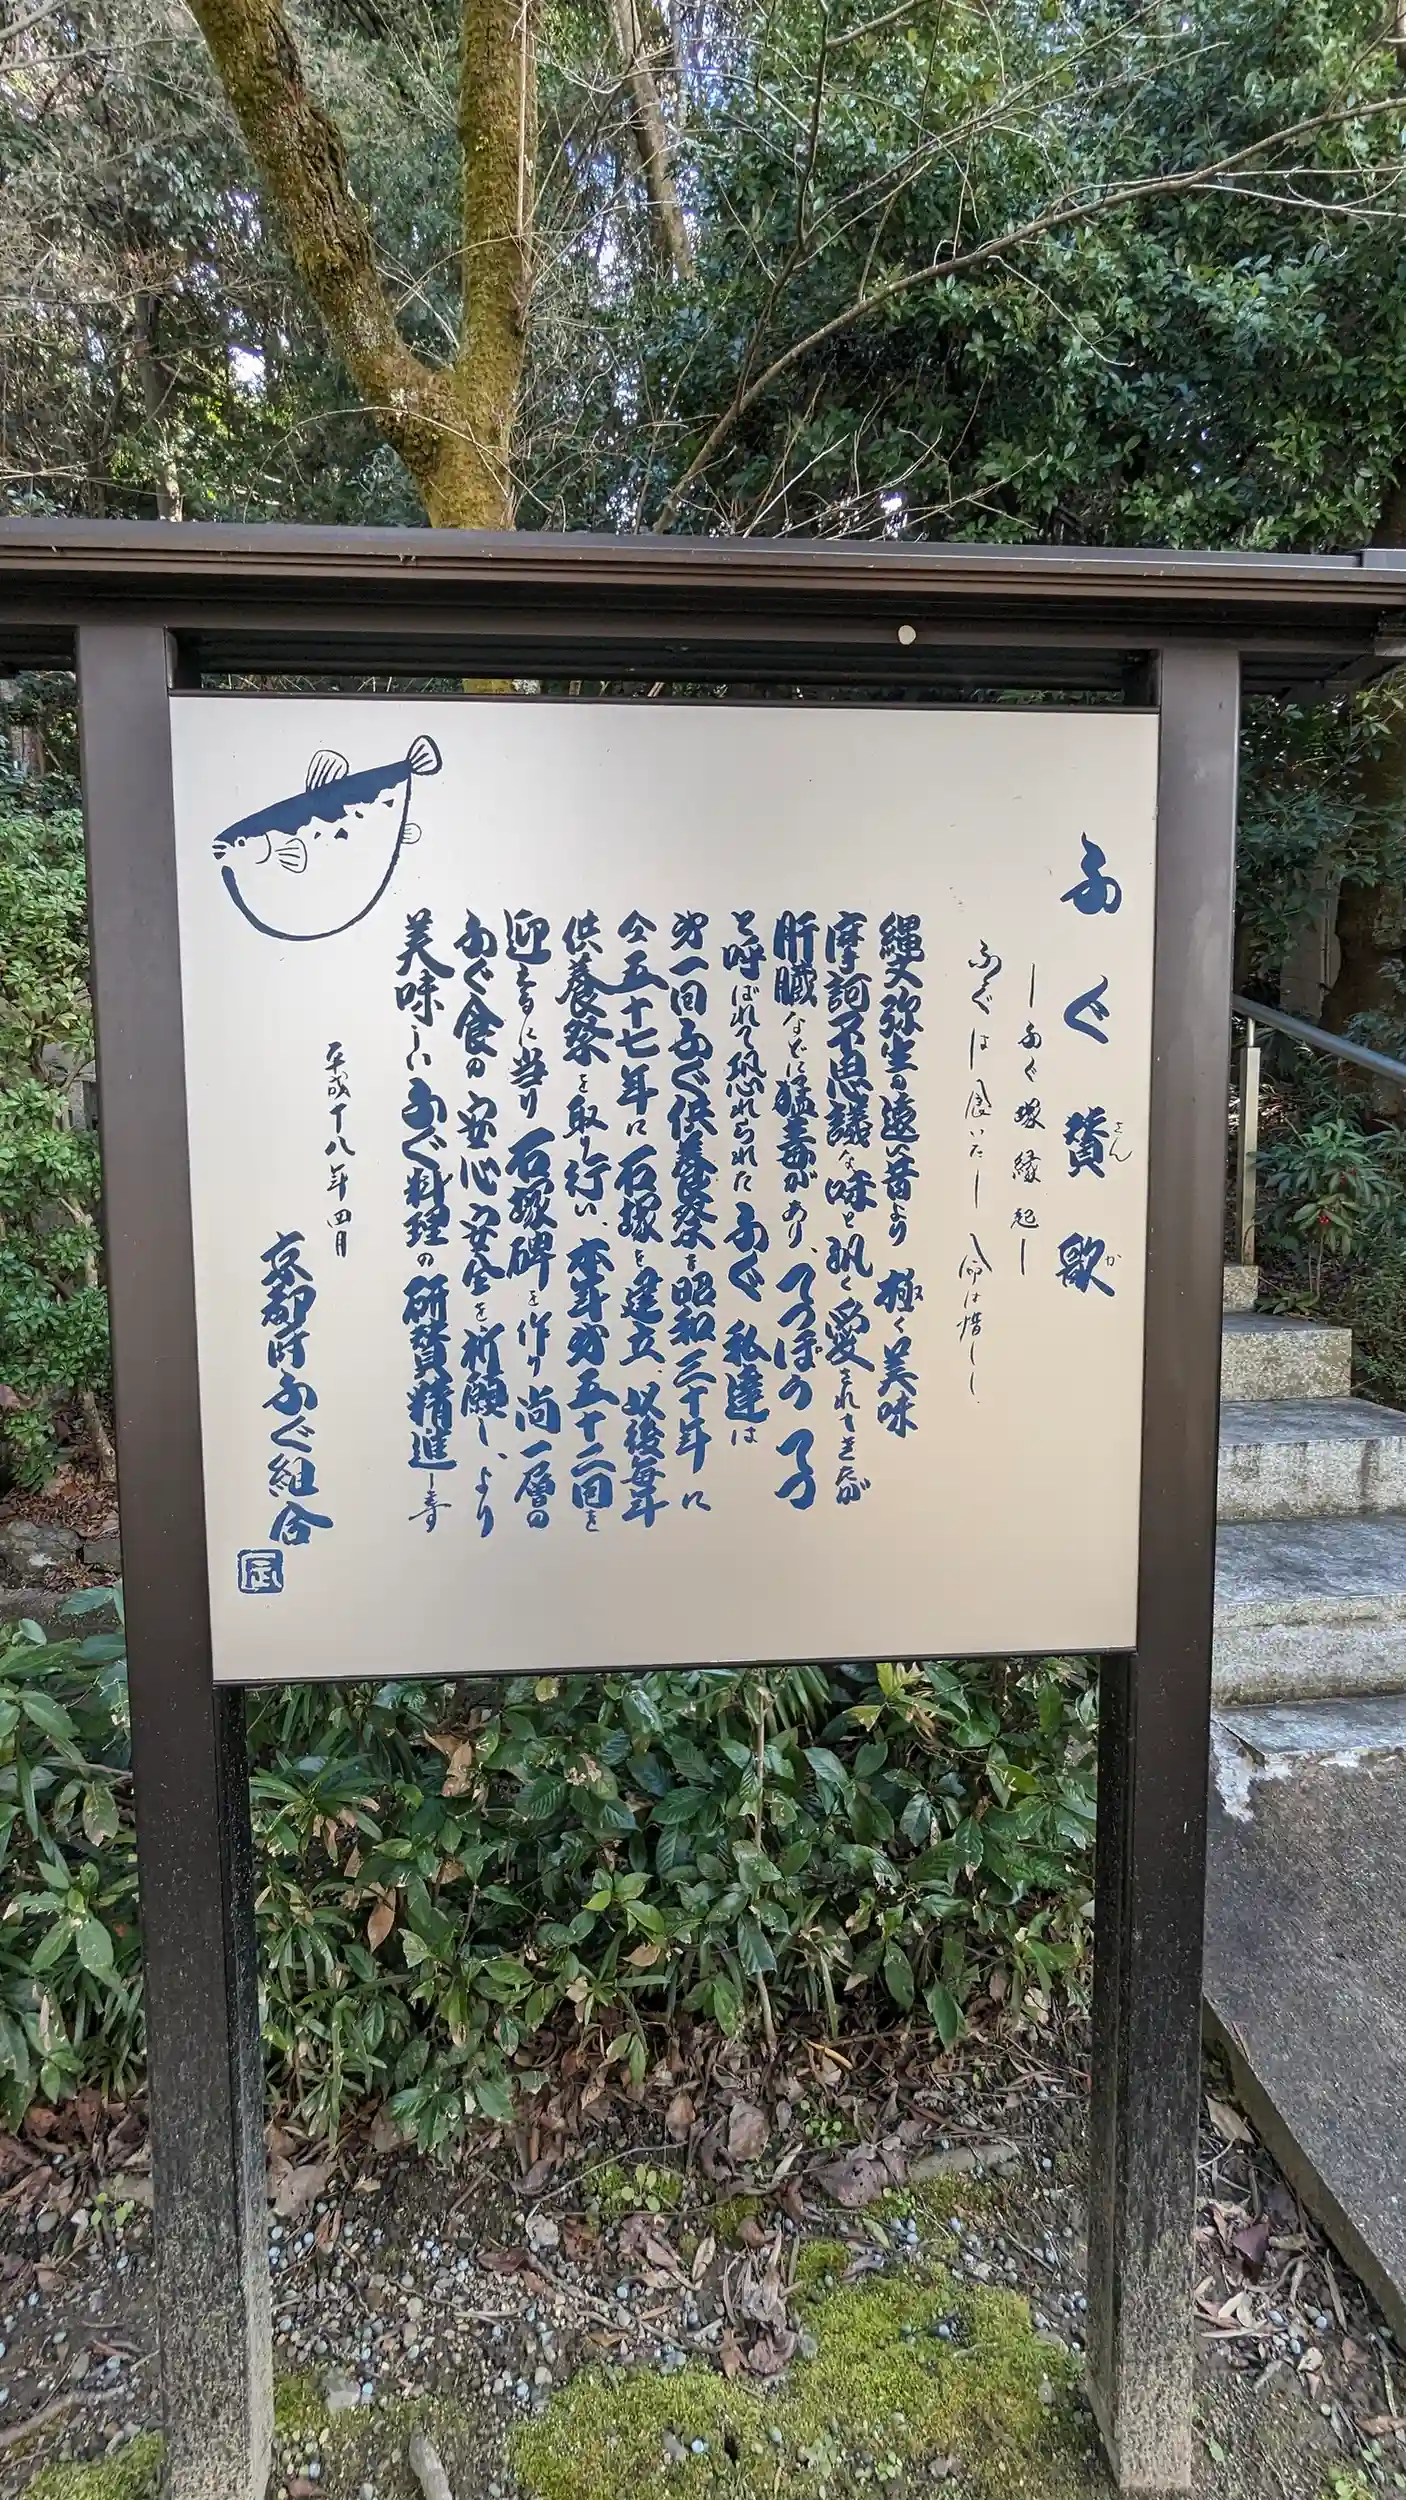 ふぐ賛歌
さん
か
ーふぐ塚縁起ー
ふぐは食いたし 命は惜しし
縄文弥生の遠い昔より 極く美味
摩訶不思議な味と永く愛されて来たが
肝臓などに猛毒があり、てっぽの てつ
と呼ばれて恐れられた ふぐ 私達は
㐧一回ふぐ供養祭を昭和三十年に
仝五十七年に石塚を建立、以後毎年
供養祭を取り行い、本年㐧五十二回を
迎えるに当り 石塚碑を作り 尚一層の
ふぐ食の安心安全を祈願し、より
美味しいふぐ料理の研賛精進し
平成十八年四月
京都府ふぐ組合